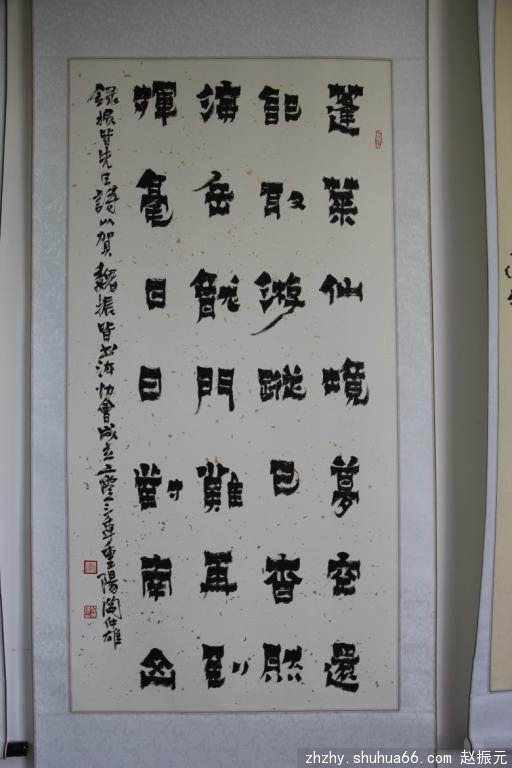 蓬萊仙境夢空還
取游蹤已杳然
海岳龍門難再到
揮毫日日對南山
錄振皆先生詩以賀魏振皆書法協會成立年重陽閻仲雄
zhzhy.shuhua66.com 赵振元